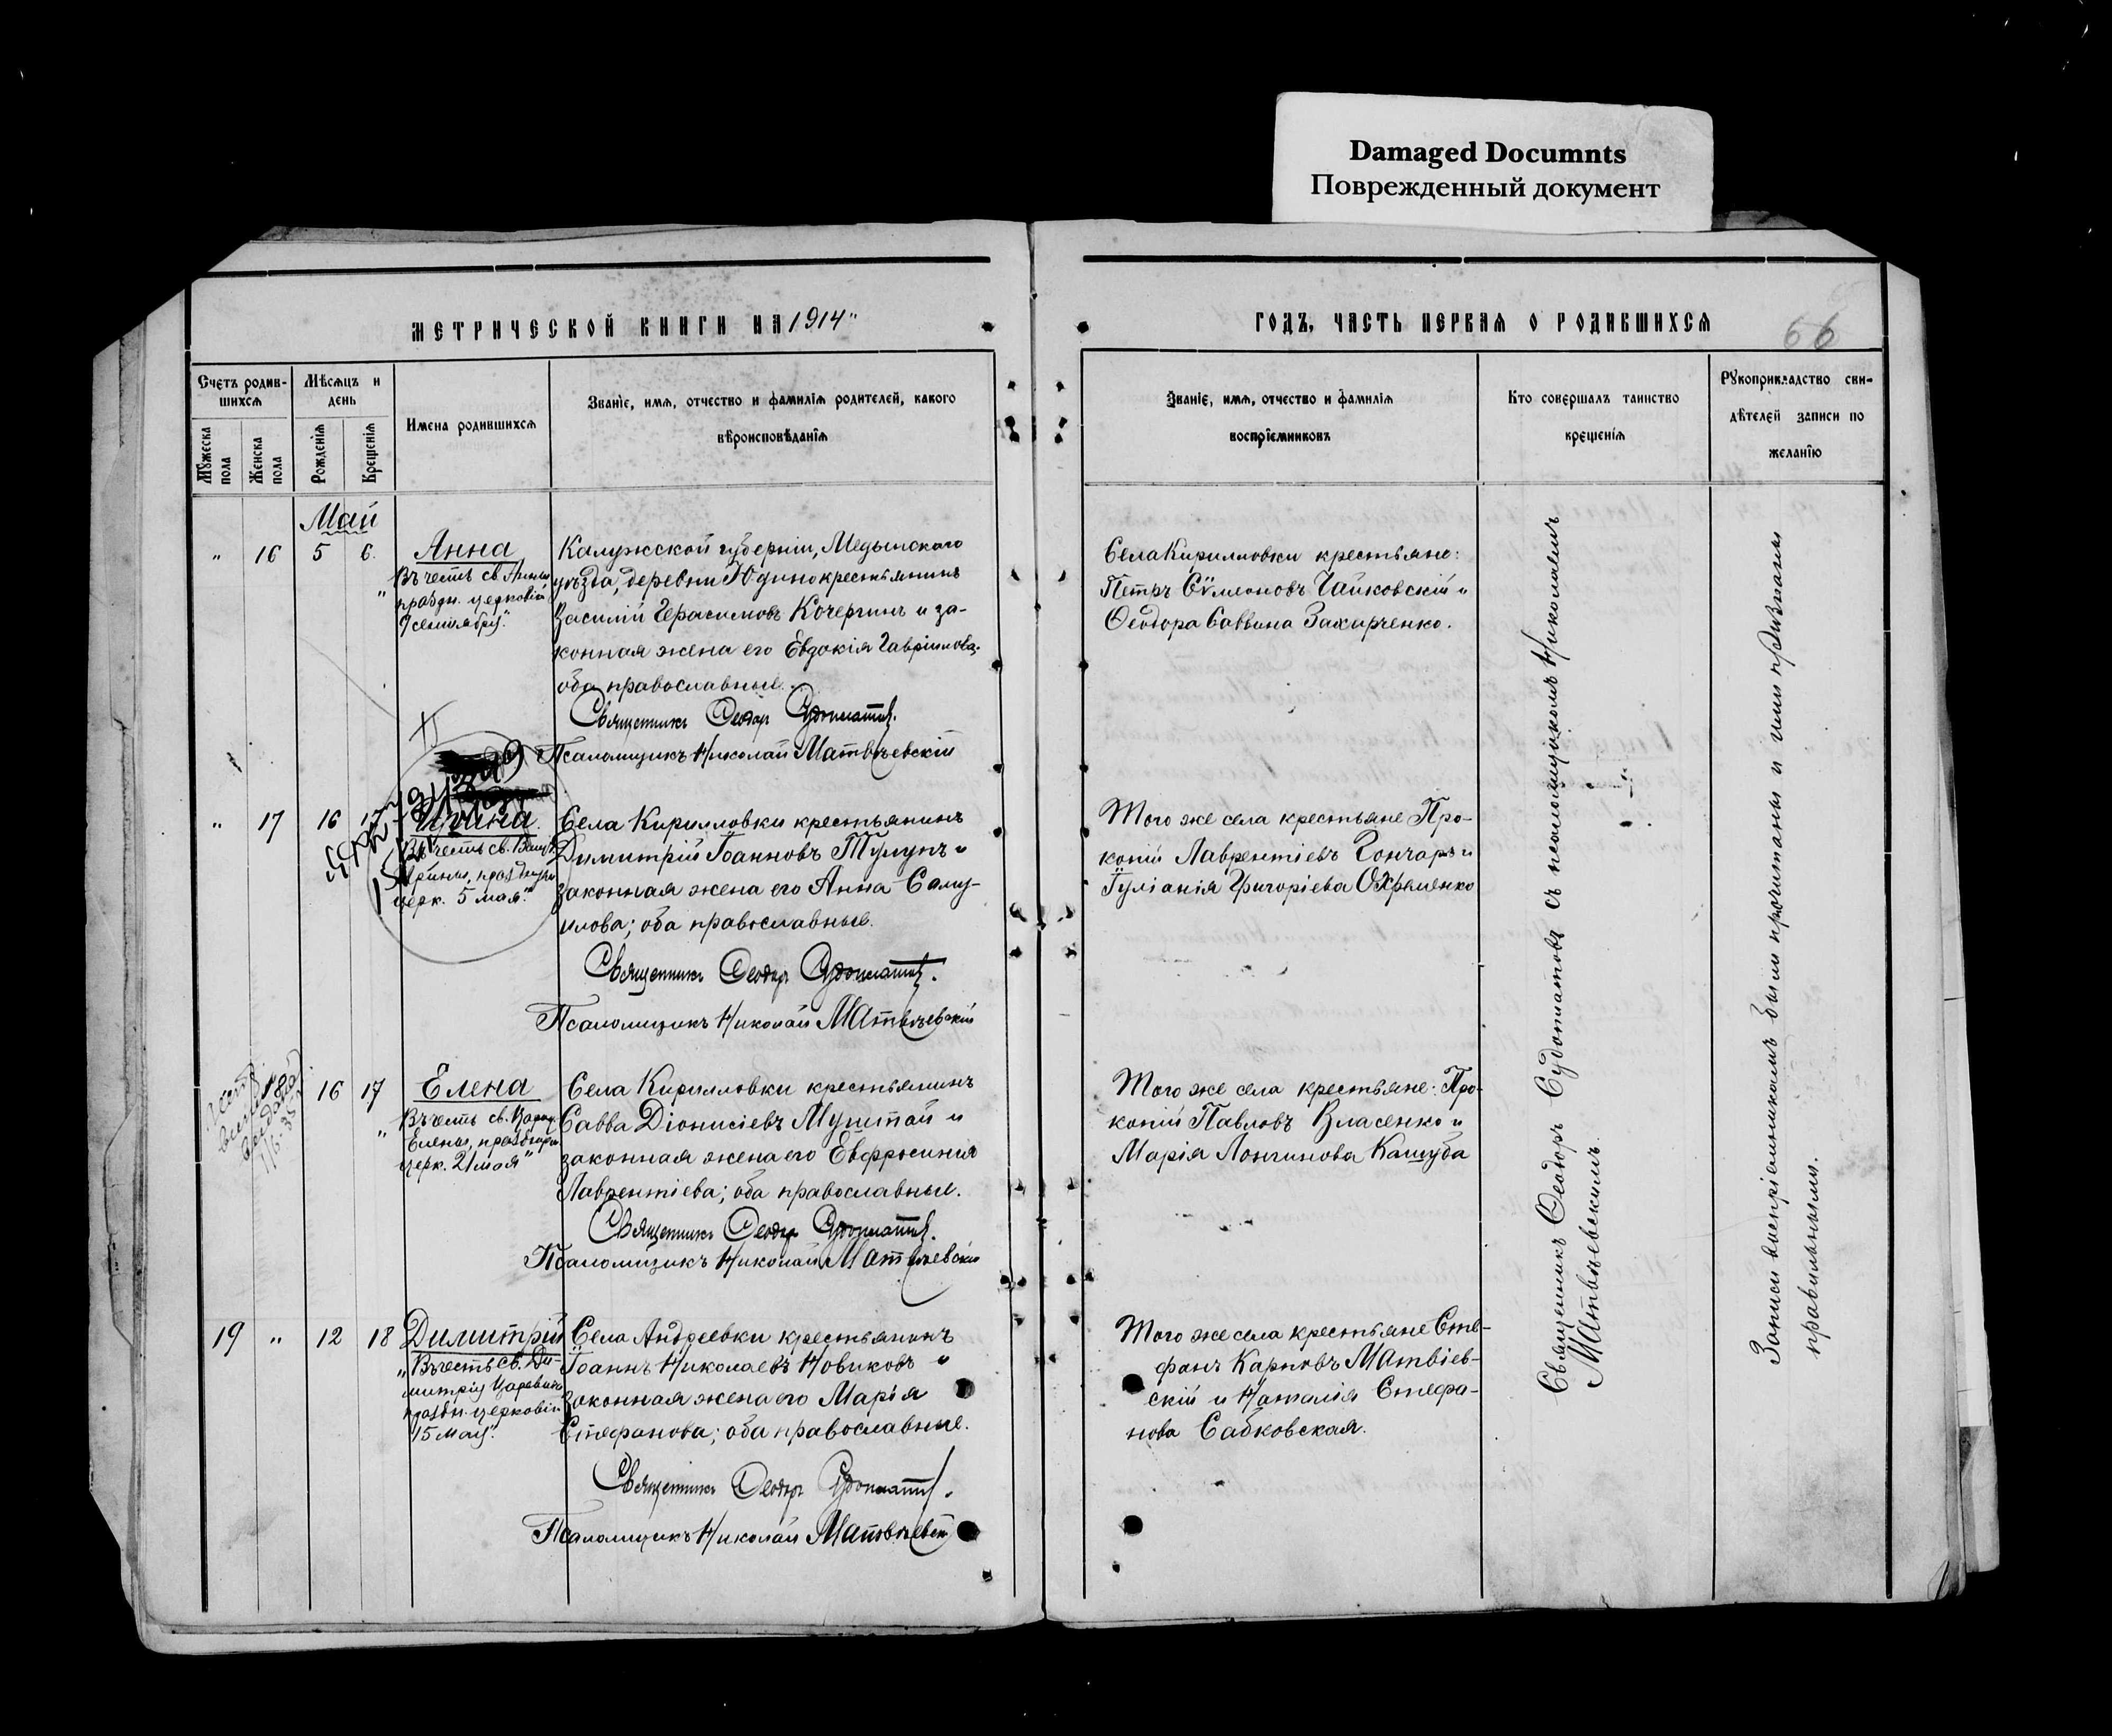 Damaged Documnts
Поврежденный документ
МЕТРИЧЕСКОЙ КНИГИ НА 1914"
Счетъ родив-
шихся
Мѣсяцъ и
день
Имена родившихся
Званіе, имя, отчество и фамилія родителей, какого
вѣроисповѣданія
Мужеска
пола
Женска
пола
Рожденія
Крещенія
Май
" 16 5 6.
Анна
"Въ честь св. Анны
праздн. церковію
9 сентября".
Калужской губерніи, Медынскаго
уѣзда, деревни Юдино крестьянинъ
Василій Герасимовъ Кочергинъ и за-
конная жена его Евдокія Гавріилова;
оба православные.
Священникъ Ѳеодоръ Судоплатовъ.
Псаломщикъ Николай Матвѣевскій
" 17 16 17
Ирина
церк. 5 мая".
Села Кирилловки крестьянинъ
Димитрій Іоанновъ Тулупъ и
законная жена его Анна Саму-
илова; оба православные.
Священникъ Ѳеодоръ Судоплатовъ.
Псаломщикъ Николай Матвѣевскій
18 16 17
Елена
"Въ честь св. Цариц.
Елены, празднуем.
церк. 21 мая"
Села Кирилловки крестьянинъ
Савва Діонисіевъ Муштай и
законная жена его Евфросинія
Лаврентіева; оба православные.
Священникъ Ѳеодоръ Судоплатовъ.
Псаломщикъ Николай Матвѣевскій
19 " 12 18
Димитрій
"Въ честь св. Ди-
митрія Царевича
праздн. церковію
15 мая".
Села Андреевки крестьянинъ
Іоаннъ Николаевъ Новиковъ и
законная жена его Марія
Стефанова; оба православные.
Священникъ Ѳеодоръ Судоплатовъ.
Псаломщикъ Николай Матвѣевскій
ГОДЪ, ЧАСТЬ ПЕРВАЯ О РОДИВШИХСЯ
66
Званіе, имя, отчество и фамилія
воспріемниковъ
Кто совершалъ таинство
крещенія
Рукоприкладство сви-
дѣтелей записи по
желанію
Села Кирилловки крестьяне:
Петръ Сѵмеоновъ Чайковскій и
Ѳеодора Саввина Захарченко.
Того же села крестьяне Про-
копій Лаврентіевъ Гончаръ и
Іуліанія Григоріева Охрѣменко
Того же села крестьяне: Про-
копій Павловъ Власенко и
Марія Лонгинова Кашуба
Того же села крестьяне Сте-
фанъ Карповъ Матвіев-
скій и Наталія Стефа-
нова Сабковская.
Священникъ Ѳеодоръ Судоплатовъ съ псаломщикомъ Николаемъ
Матвѣевскимъ.
Записи воспріемникамъ были прочитаны и ими признаны
правильными.